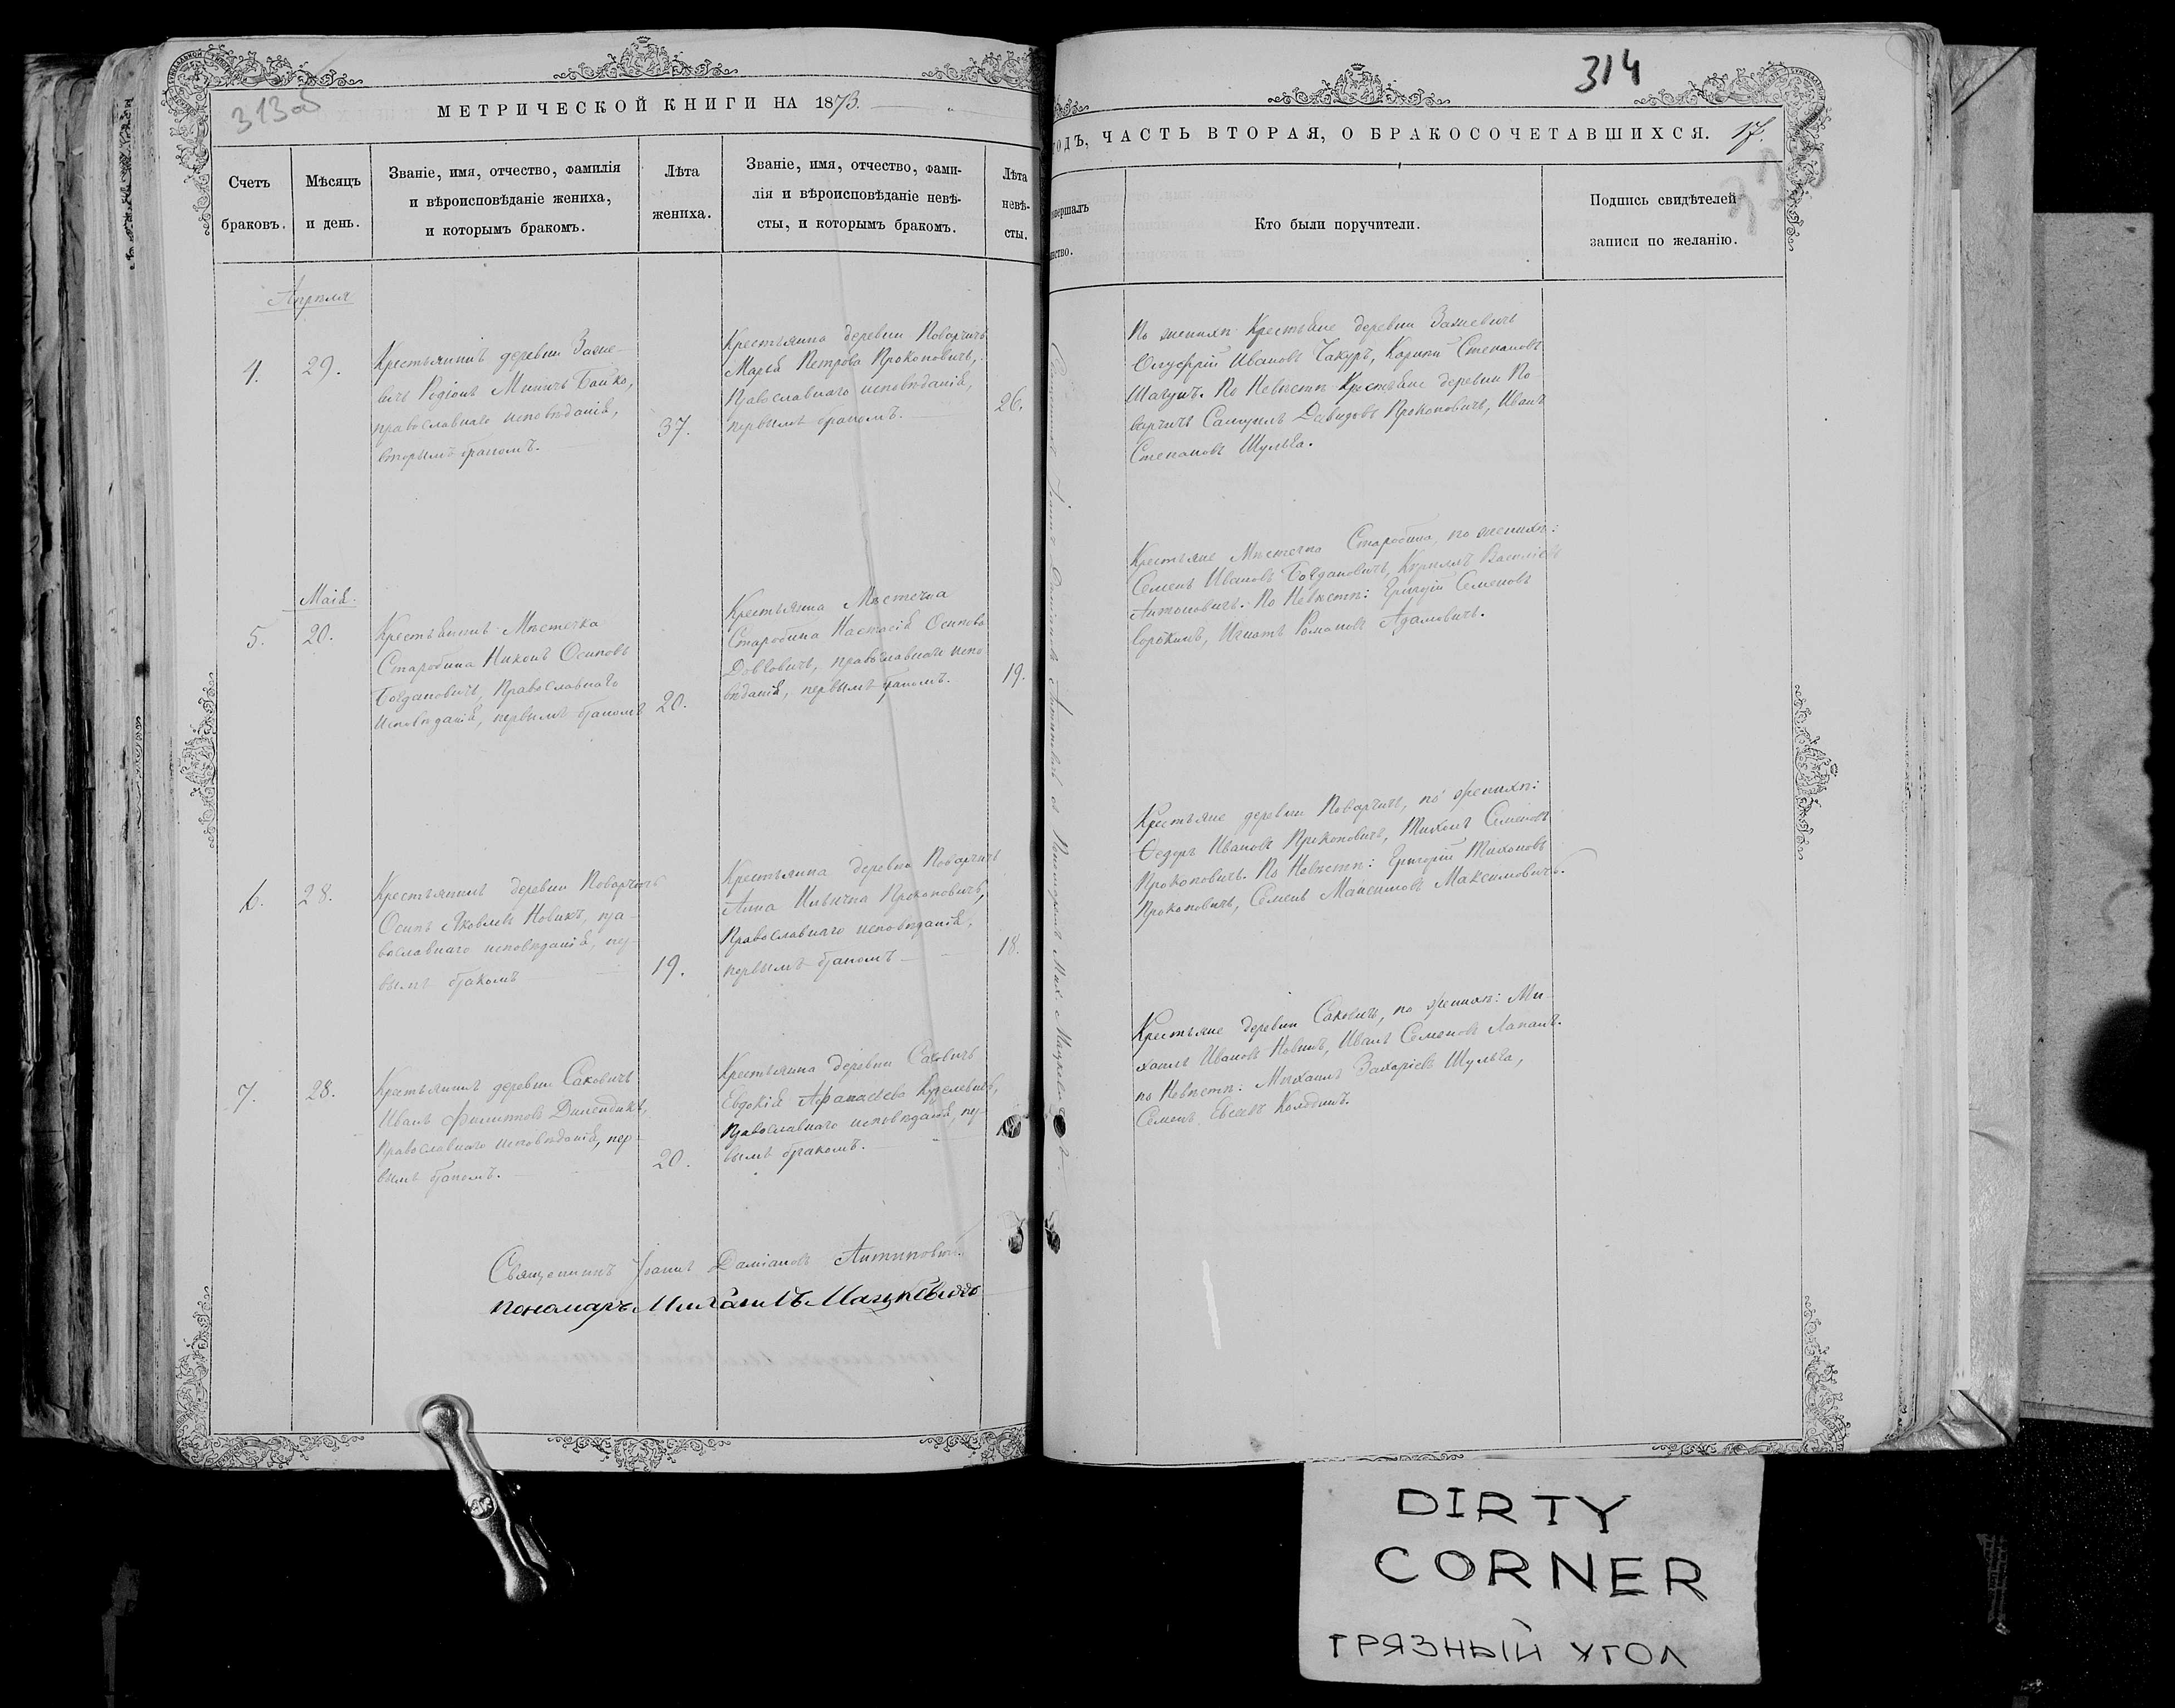 313об
МЕТРИЧЕСКОЙ КНИГИ НА 1873.
Счетъ
браковъ.
Мѣсяцъ
и день.
Званіе, имя, отчество, фамилія
и вѣроисповѣданіе жениха,
и которымъ бракомъ.
Лѣта
жениха.
Званіе, имя, отчество, фами-
лія и вѣроисповѣданіе невѣ-
сты, и которымъ бракомъ.
Лѣта
невѣ-
сты.
Апрѣля
4.
29.
Крестьянинъ деревни
Родіонъ Бойко,
православнаго исповѣданія,
вторымъ бракомъ.
37.
Крестьянка деревни Поварчичъ
Марья Петрова Прокоповичъ,
Православнаго исповѣданія,
первымъ бракомъ.
26.
Маія.
5.
20.
Крестьянинъ Мѣстечка
Старобина Никонъ Осиповъ
Богдановичъ, Православнаго
Исповѣданія, первымъ бракомъ
20.
Крестьянка Мѣстечка
Старобина Настасія Осипова
православнаго испо-
вѣданія, первымъ бракомъ.
19.
6.
28.
Крестьянинъ деревни Поварчичъ
Осипъ Яковлевъ Новикъ, пра-
вославнаго исповѣданія, пер-
вымъ бракомъ
19.
Крестьянка деревни Поварчичъ
Анна Ильична Прокоповичъ,
Православнаго исповѣданія,
первымъ бракомъ
18.
7.
28.
Крестьянинъ деревни Саковичъ
Иванъ Филиповъ
Православнаго исповѣданія, пер-
вымъ бракомъ.
20.
Крестьянка деревни Саковичъ
Евдокія Афанасіева
Православнаго исповѣданія, пер-
вымъ бракомъ.
Священникъ Іоаннъ Даміановъ
пономарь Михаилъ Мацкевичъ
314
ГОДЪ, ЧАСТЬ ВТОРАЯ, О БРАКОСОЧЕТАВШИХСЯ. 17.
Кто были поручители.
Подпись свидѣтелей
записи по желанію.
По женихѣ Крестьяне деревни
Онуфрій Ивановъ Чакуръ, Степановъ
По Невѣстѣ Крестьяне деревни По-
варчичъ Самуилъ Давидовъ Прокоповичъ, Иванъ
Степановъ Шульга.
Крестьяне Мѣстечка Старобина, по женихѣ:
Семенъ Ивановъ Богдановичъ, Кирилъ Василіевъ
Антоновичъ. По Невѣстѣ: Григорій Семеновъ
Сорокинъ, Игнатъ Романовъ Адамовичъ.
Крестьяне деревни Поварчичъ, по женихѣ:
Ѳедоръ Ивановъ Прокоповичъ, Тихонъ Семеновъ
Прокоповичъ. По Невѣстѣ: Григорій Тихоновъ
Прокоповичъ, Семенъ Максимовъ Максимовичъ.
Крестьяне деревни Саковичъ, по женихѣ: Ми-
хаилъ Ивановъ Новикъ, Иванъ Семеновъ
по Невѣстѣ: Михаилъ Захаріевъ Шульга,
Семенъ
DIRTY
CORNER
ГРЯЗНЫЙ УГОЛ